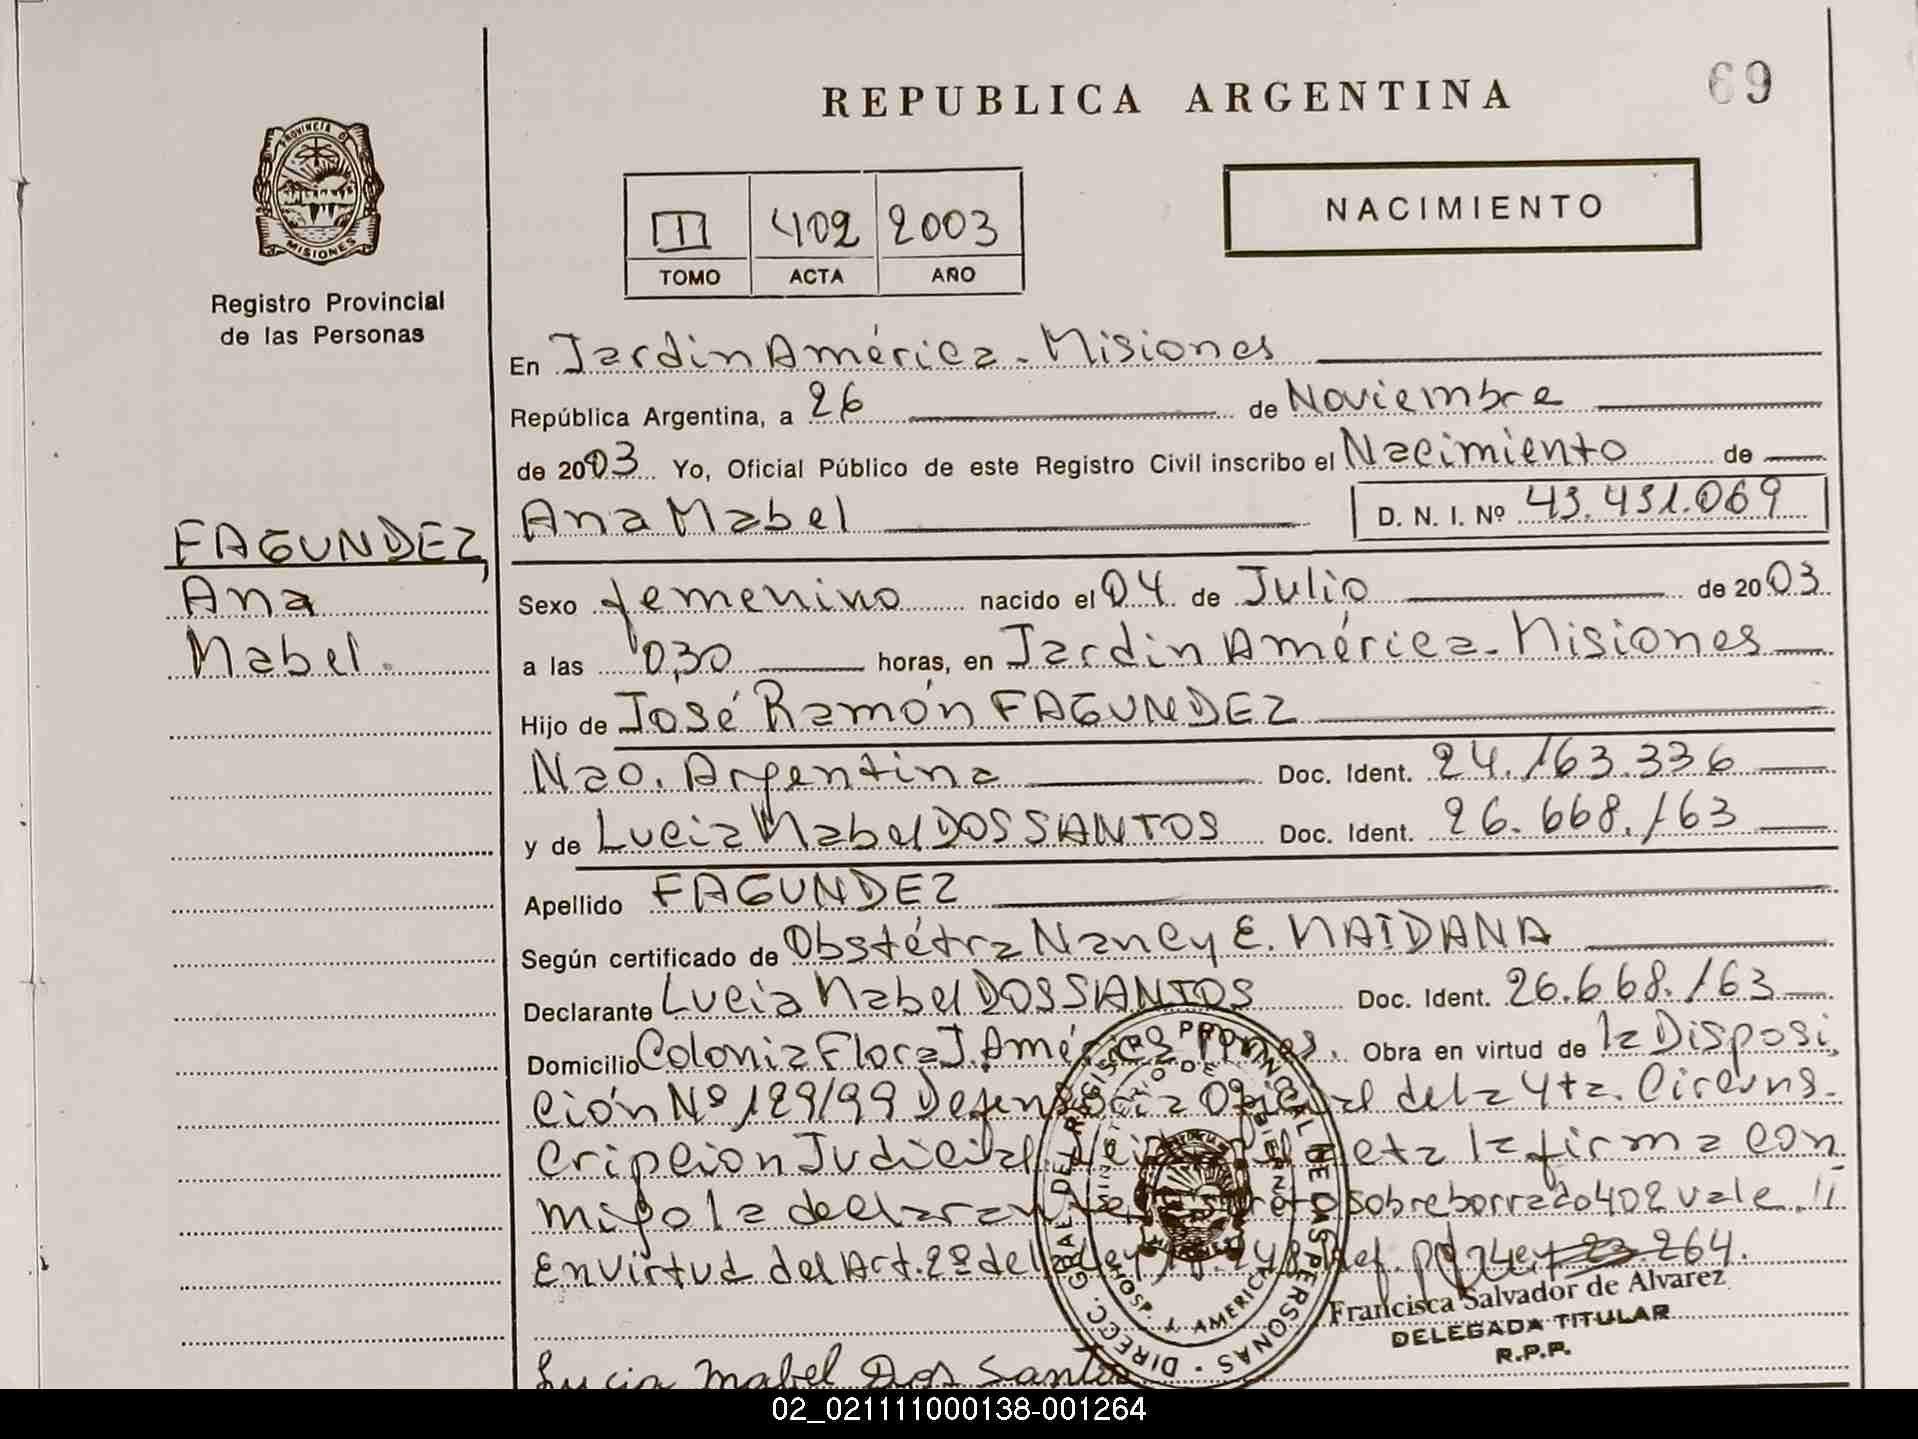 REPUBLICA ARGENTINA
69
PROVINCIA D
MISIONES
Registro Provincial
de las Personas
I 402 2003
TOMO ACTA AÑO
NACIMIENTO
En Jardin América - Misiones
República Argentina, a 26 de Noviembre
de 2003 Yo, Oficial Público de este Registro Civil inscribo el Nacimiento de
Ana Mabel D. N. I. Nº 43.431.069
FAGUNDEZ,
Ana
Mabel.
Sexo femenino nacido el 04 de Julio de 2003
a las 0,30 horas, en Jardin América - Misiones
Hijo de José Ramón FAGUNDEZ
Nac. Argentina Doc. Ident. 24.163.336
y de Lucia Mabel DOS SANTOS Doc. Ident. 26.668.163
Apellido FAGUNDEZ
Según certificado de Obstétra Nancy E. MAIDANA
Declarante Lucia Mabel DOS SANTOS Doc. Ident. 26.668.163
Domicilio Colonia Flora J. América Mnes. Obra en virtud de la Disposi
ción Nº 129/99 Defensoria Oficial de la 4ta. Circuns-
cripcion Judicial la firma con
migo la declarante sobreborrado 402 vale.
En virtud del Art. 2º de Ley 264.
DIRECC. GRAL DEL REGISTRO PROVINCIAL DE LAS PERSONAS
MINISTERIO DE GOBIERNO
HOSP. J. AMERICA
Francisca Salvador de Alvarez
DELEGADA TITULAR
R.P.P.
Lucia Mabel Dos Santos
02_021111000138-001264